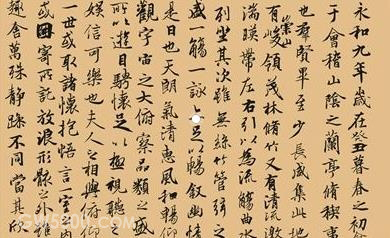 永和九年歲在癸丑暮春之初
于會稽山陰之蘭亭脩稧
也群賢畢至少長咸集此地
有崇山峻領茂林脩竹又有清流激
湍暎帶左右引以為流觴曲水
列坐其次雖無絲竹管弦
盛一觴一詠足以暢敘幽情
是日也天朗氣清惠風和暢仰
觀宇宙之大俯察品類之盛
所以遊目騁懷足以極視聽
娛信可樂也夫人之相與俯仰
一世或取諸懷抱悟言一室
或因寄所託放浪形骸
趣舍萬殊靜躁不同當其欣